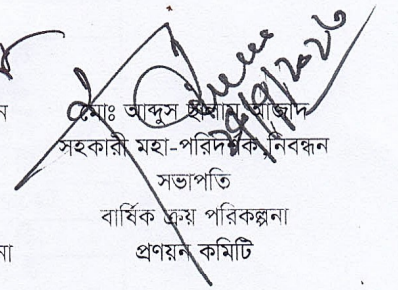 মোঃ আব্দুস ছালাম আজাদ
সহকারী মহা-পরিদর্শক নিবন্ধন
সভাপতি
বার্ষিক ক্রয় পরিকল্পনা
প্রণয়ন কমিটি